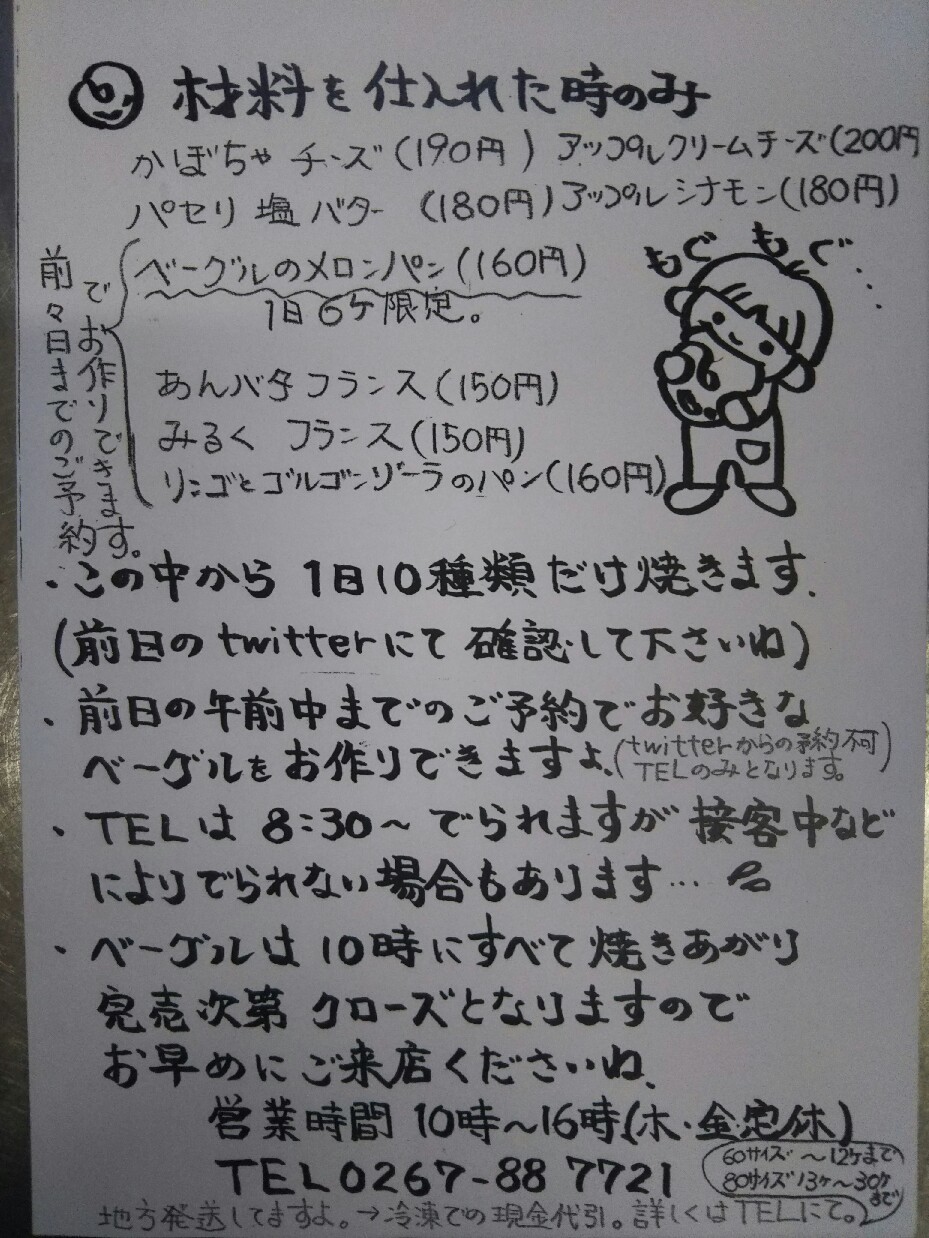 材料を仕入れた時のみ
かぼちゃチーズ(190円) アップルクリームチーズ(200円
パセリ塩バター (180円) アップルシナモン(180円)
前々日までのご予約
でお作りできます。
ベーグルのメロンパン(160円)
1日6ケ限定。
もぐもぐ...
あんバタフランス(150円)
みるく フランス(150円)
リンゴとゴルゴンゾーラのパン(160円)
・この中から 1日10種類だけ焼きます.
(前日のtwitterにて確認して下さいね)
・前日の午前中までのご予約でお好きな
ベーグルをお作りできますよ、
(twitterからの予約不可
TELのみとなります。)
・TELは 8:30～ でられますが 接客中など
によりでられない場合もあります…
・ベーグルは 10時にすべて焼きあがり
完売次第 クローズとなりますので
お早めにご来店くださいね、
営業時間 10時～16時(木・金定休)
TEL0267-88 7721
60サイズ ～12ケまで
80サイズ13ケ～30ケ
まで
地方発送してますよ。→冷凍での現金代引。詳しくはTELにて。